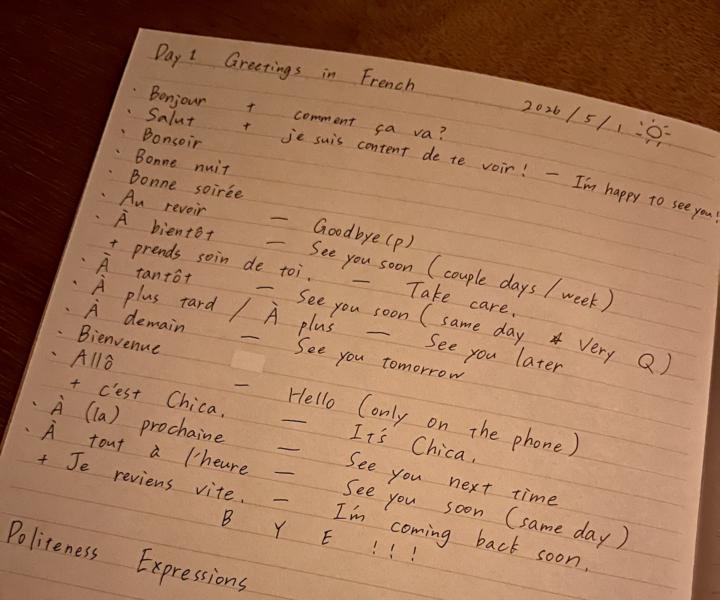 Day 1 Greetings in French
2026/5/1
· Bonjour + comment ça va?
· Salut + je suis content de te voir! — I'm happy to see you!
· Bonsoir
· Bonne nuit
· Bonne soirée
· Au revoir — Goodbye (p)
· À bientôt — See you soon (couple days / week)
+ prends soin de toi. — Take care.
· À tantôt — See you soon (same day * Very Q)
· À plus tard / À plus — See you later
· À demain — See you tomorrow
· Bienvenue
· Allô — Hello (only on the phone)
+ c'est Chica. — It's Chica.
· À (la) prochaine — See you next time
· À tout à l'heure — See you soon (same day)
+ Je reviens vite. — I'm coming back soon.
B Y E !!!
Politeness Expressions